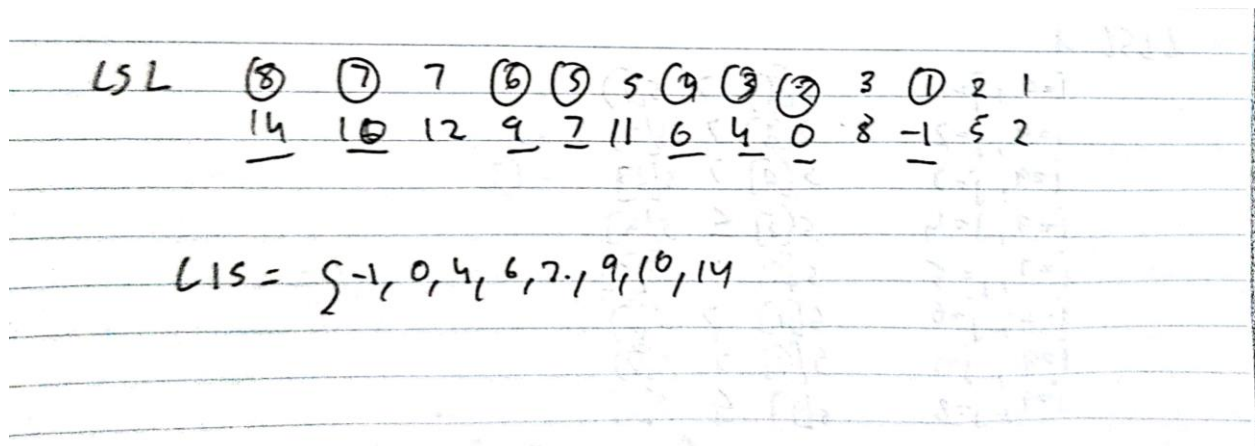 LSL ⑧ ⑦ 7 ⑥ ⑤ 5 ④ ③ ② 3 ① 2 1
14 10 12 9 7 11 6 4 0 8 -1 5 2
LIS = {-1, 0, 4, 6, 7, 9, 10, 14